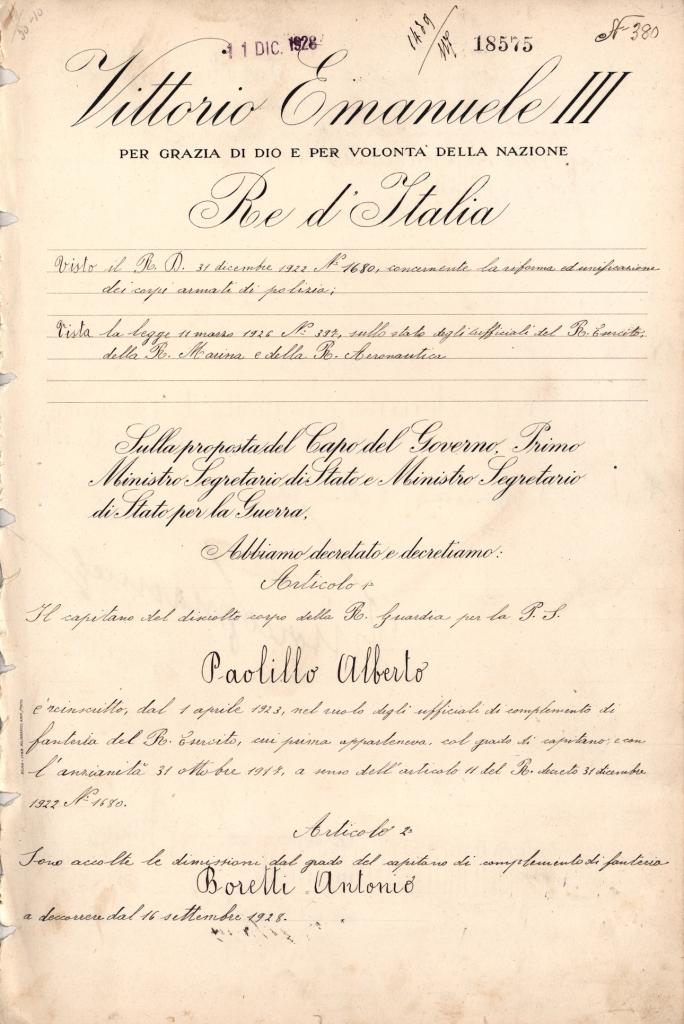 11 DIC. 1928
18575
N° 380
Vittorio Emanuele III
PER GRAZIA DI DIO E PER VOLONTÀ DELLA NAZIONE
Re d'Italia
Visto il R. D. 31 dicembre 1922 N° 1680, concernente la riforma ed unificazione
dei corpi armati di polizia;
Vista la legge 11 marzo 1926 N° 397, sullo stato degli ufficiali del R. Esercito,
della R. Marina e della R. Aeronautica
Sulla proposta del Capo del Governo, Primo
Ministro Segretario di Stato e Ministro Segretario
di Stato per la Guerra,
Abbiamo decretato e decretiamo:
Articolo 1°
Il capitano del disciolto corpo della R. Guardia per la P. S.
Paolillo Alberto
è reinscritto, dal 1 aprile 1923, nel ruolo degli ufficiali di complemento di
fanteria del R. Esercito, cui prima apparteneva, col grado di capitano, e con
l'anzianità 31 ottobre 1918, a senso dell'articolo 11 del R. decreto 31 dicembre
1922 N° 1680.
Articolo 2°
Sono accolte le dimissioni dal grado del capitano di complemento di fanteria
Boretti Antonio
a decorrere dal 16 settembre 1928.